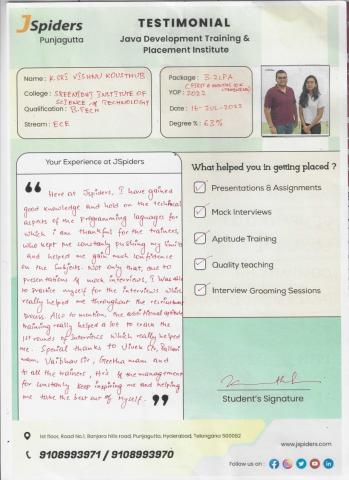 JSpiders
Punjagutta
TESTIMONIAL
Java Development Training &
Placement Institute
Name : K. SRI VISHNU KOUSTHUB
College : SREENIDHI INSTITUTE OF
SCIENCE & TECHNOLOGY
Qualification : B-TECH
Stream : ECE
Package : 3.2LPA
YOP : 2022
Date : 14-JUL-2022
Degree % : 63%
Your Experience at JSpiders
Here at Jspiders, I have gained
good knowledge and hold on the technical
aspects of the programming laguages for
which i am thankful for the trainees,
who kept me constantly pushing my limits
and helped me gain much confidence
on the subjects. Not only that, due to
presentations & mock interviews, I was able
to practice myself for the interviews which
really helped me throughout the recruitment
process. Also to mention, the additional aptitude
training really helped a lot to crack the
1st rounds of interviews which really helped
me. Special thanks to Vivek Sir, Pallavi
mam, Vaibhav Sir, Geetha mam and
to all the trainers, Hr's & the management
for constantly keep inspiring me and helping
me take the best out of myself.
What helped you in getting placed ?
Presentations & Assignments
Mock Interviews
Aptitude Training
Quality teaching
Interview Grooming Sessions
Student's Signature
1st floor, Road No.1, Banjara hills road, Punjagutta, Hyderabad, Telangana 500082
9108993971 / 9108993970
www.jspiders.com
Follow us on :